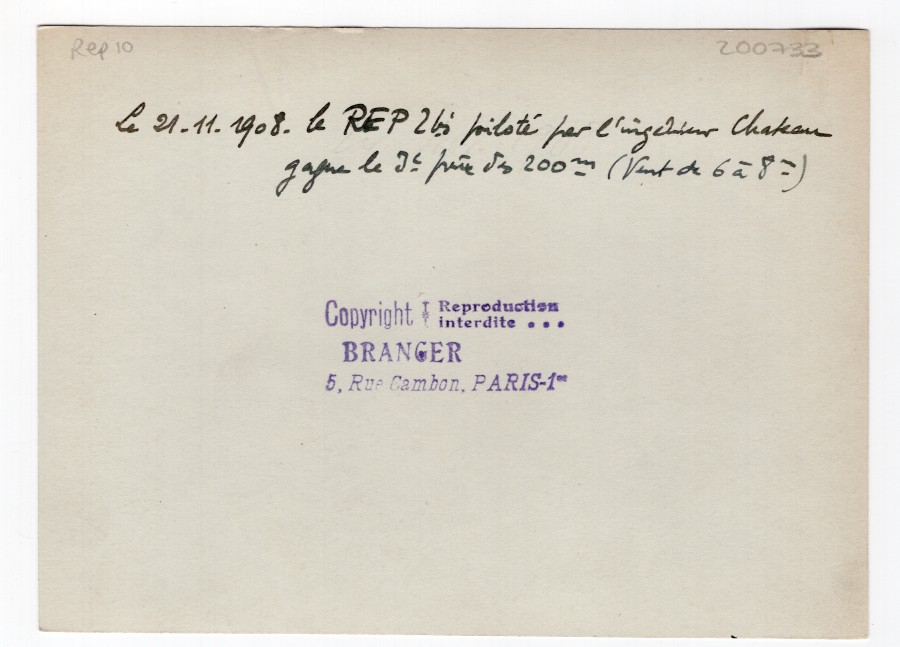 Rep 10
200733
Le 21-11-1908- le REP 2bis piloté par l'ingénieur Chateau
gagne le 3e prix des 200m (Vent de 6 à 8m)
Copyright Reproduction
interdite • • •
BRANGER
5, Rue Cambon, PARIS-1er